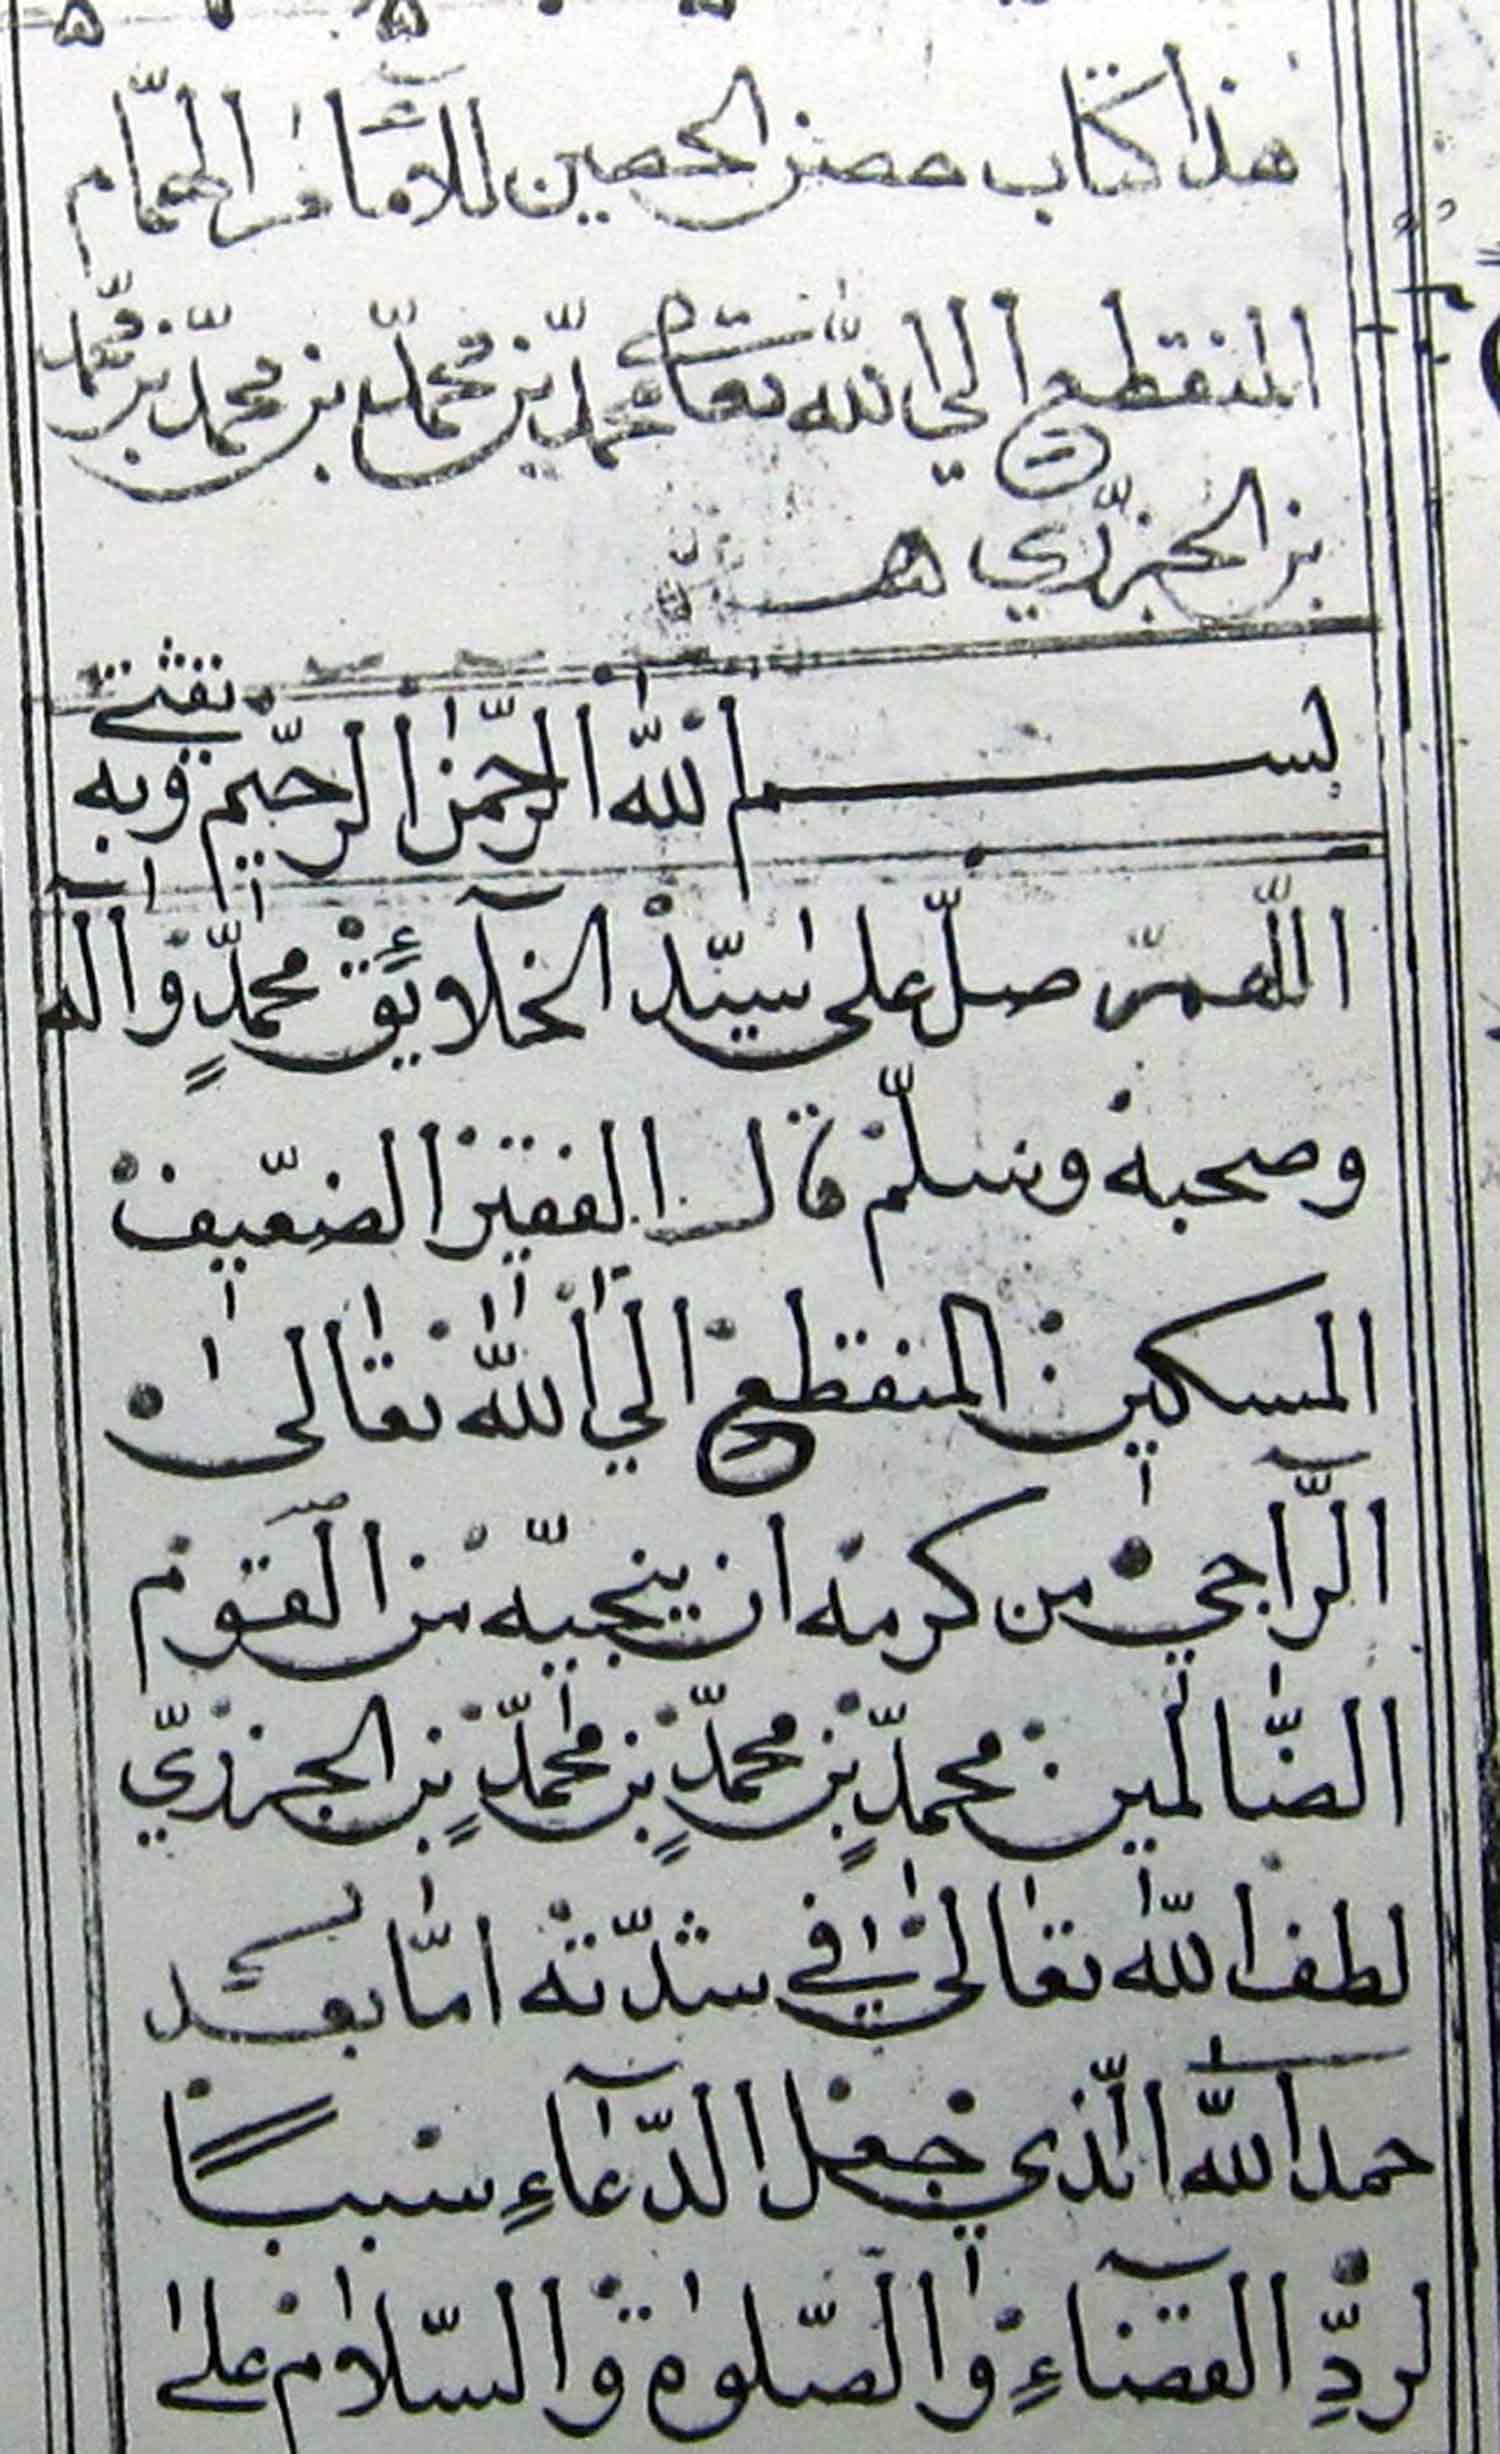 هذا كتاب حصن الحصين للامام الهمّام
المنقطع الي الله تعالى محمّد بن محمّد بن محمّد بن محمّد
بن الجزرّي
بسم الله الرّحمن الرحّيم وبه ثقتي
اللّهمّ صلّ على سيّد الخلآئق محمّدٍ واله
وصحبه وسلّم قال الفقير الضّعيف
المسكين المنقطع الي الله تعالى
الرّاجي من كرمه ان ينجيّه من القوم
الضّالمين محمّدٍ بن محمّدٍ بن محمّدٍ بن الجزريّ
لطف الله تعالى في شدّته امّا بعد
حمد الله الّذي جعل الدّعآءِ سببًا
لردِّ القضآءِ والصّلوة والسّلام على